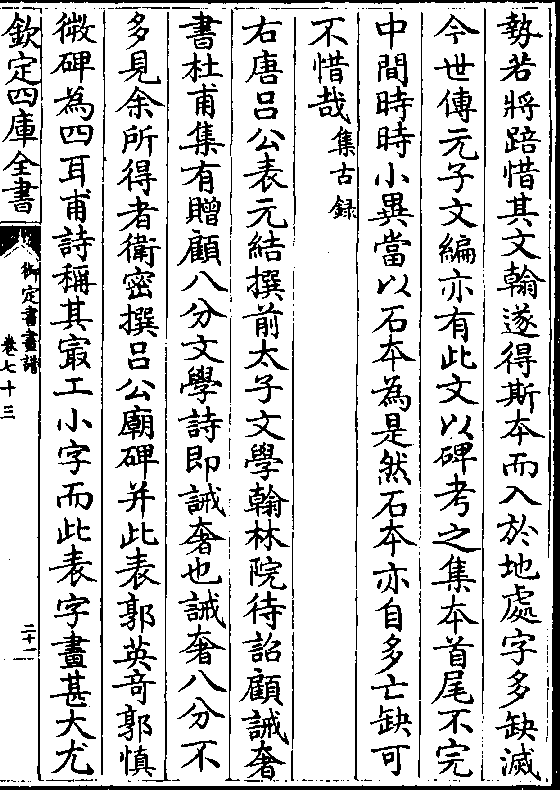 勢若將踣惜其文翰遂得斯本而入於地處字多缺滅
今世傳元子文編亦有此文以碑考之集本首尾不完
中間時時小異當以石本為是然石本亦自多亡缺可
不惜哉集古録
右唐吕公表元結撰前太子文學翰林院待詔顧誡奢
書杜甫集有贈顧八分文學詩即誡奢也誡奢八分不
多見余所得者衛密撰吕公廟碑并此表郭英奇郭慎
微碑為四耳甫詩稱其㝡工小字而此表字畫甚大尤
欽定四庫全書
御定書畫譜
卷七十三
二十一